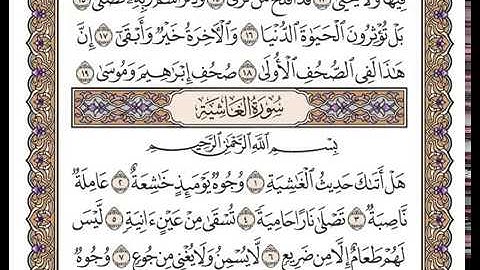 فِيهَا وَلَا يَحْيَىٰ ١٣ قَدْ أَفْلَحَ مَن تَزَكَّىٰ ١٤ وَذَكَرَ ٱسْمَ رَبِّهِۦ فَصَلَّىٰ ١٥
بَلْ تُؤْثِرُونَ ٱلْحَيَوٰةَ ٱلدُّنْيَا ١٦ وَٱلْأَخِرَةُ خَيْرٌ وَأَبْقَىٰٓ ١٧ إِنَّ
هَٰذَا لَفِى ٱلصُّحُفِ ٱلْأُولَىٰ ١٨ صُحُفِ إِبْرَٰهِيمَ وَمُوسَىٰ ١٩
سُورَةُ الغَاشِيَةِ
بِسْمِ ٱللَّهِ ٱلرَّحْمَٰنِ ٱلرَّحِيمِ
هَلْ أَتَىٰكَ حَدِيثُ ٱلْغَٰشِيَةِ ١ وُجُوهٌ يَوْمَئِذٍ خَٰشِعَةٌ ٢ عَامِلَةٌ
نَّاصِبَةٌ ٣ تَصْلَىٰ نَارًا حَامِيَةً ٤ تُسْقَىٰ مِنْ عَيْنٍ ءَانِيَةٍ ٥ لَّيْسَ
لَهُمْ طَعَامٌ إِلَّا مِن ضَرِيعٍ ٦ لَّا يُسْمِنُ وَلَا يُغْنِى مِن جُوعٍ ٧ وُجُوهٌ